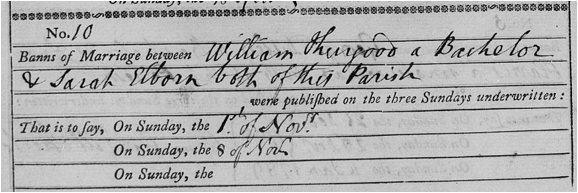 No. 10
Banns of Marriage between William Thurgood a Bachelor
& Sarah Elborn both of this Parish
were publiſhed on the three Sundays underwritten:
That is to ſay, On Sunday, the 1st of Novr
On Sunday, the 8 of Novr
On Sunday, the